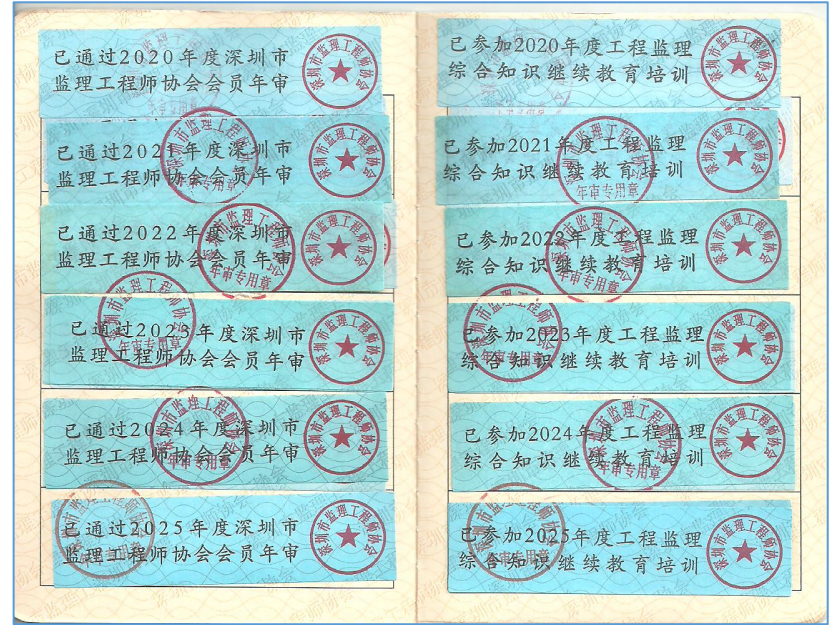 已通过2020年度深圳市
监理工程师协会会员年审
深圳市监理工程师协会
年审专用章
已通过2021年度深圳市
监理工程师协会会员年审
深圳市监理工程师协会
年审专用章
已通过2022年度深圳市
监理工程师协会会员年审
深圳市监理工程师协会
年审专用章
已通过2023年度深圳市
监理工程师协会会员年审
深圳市监理工程师协会
年审专用章
已通过2024年度深圳市
监理工程师协会会员年审
深圳市监理工程师协会
年审专用章
已通过2025年度深圳市
监理工程师协会会员年审
深圳市监理工程师协会
已参加2020年度工程监理
综合知识继续教育培训
深圳市监理工程师协会
已参加2021年度工程监理
综合知识继续教育培训
深圳市监理工程师协会
年审专用章
已参加2022年度工程监理
综合知识继续教育培训
深圳市监理工程师协会
年审专用章
已参加2023年度工程监理
综合知识继续教育培训
深圳市监理工程师协会
年审专用章
已参加2024年度工程监理
综合知识继续教育培训
深圳市监理工程师协会
年审专用章
已参加2025年度工程监理
综合知识继续教育培训
深圳市监理工程师协会
年审专用章